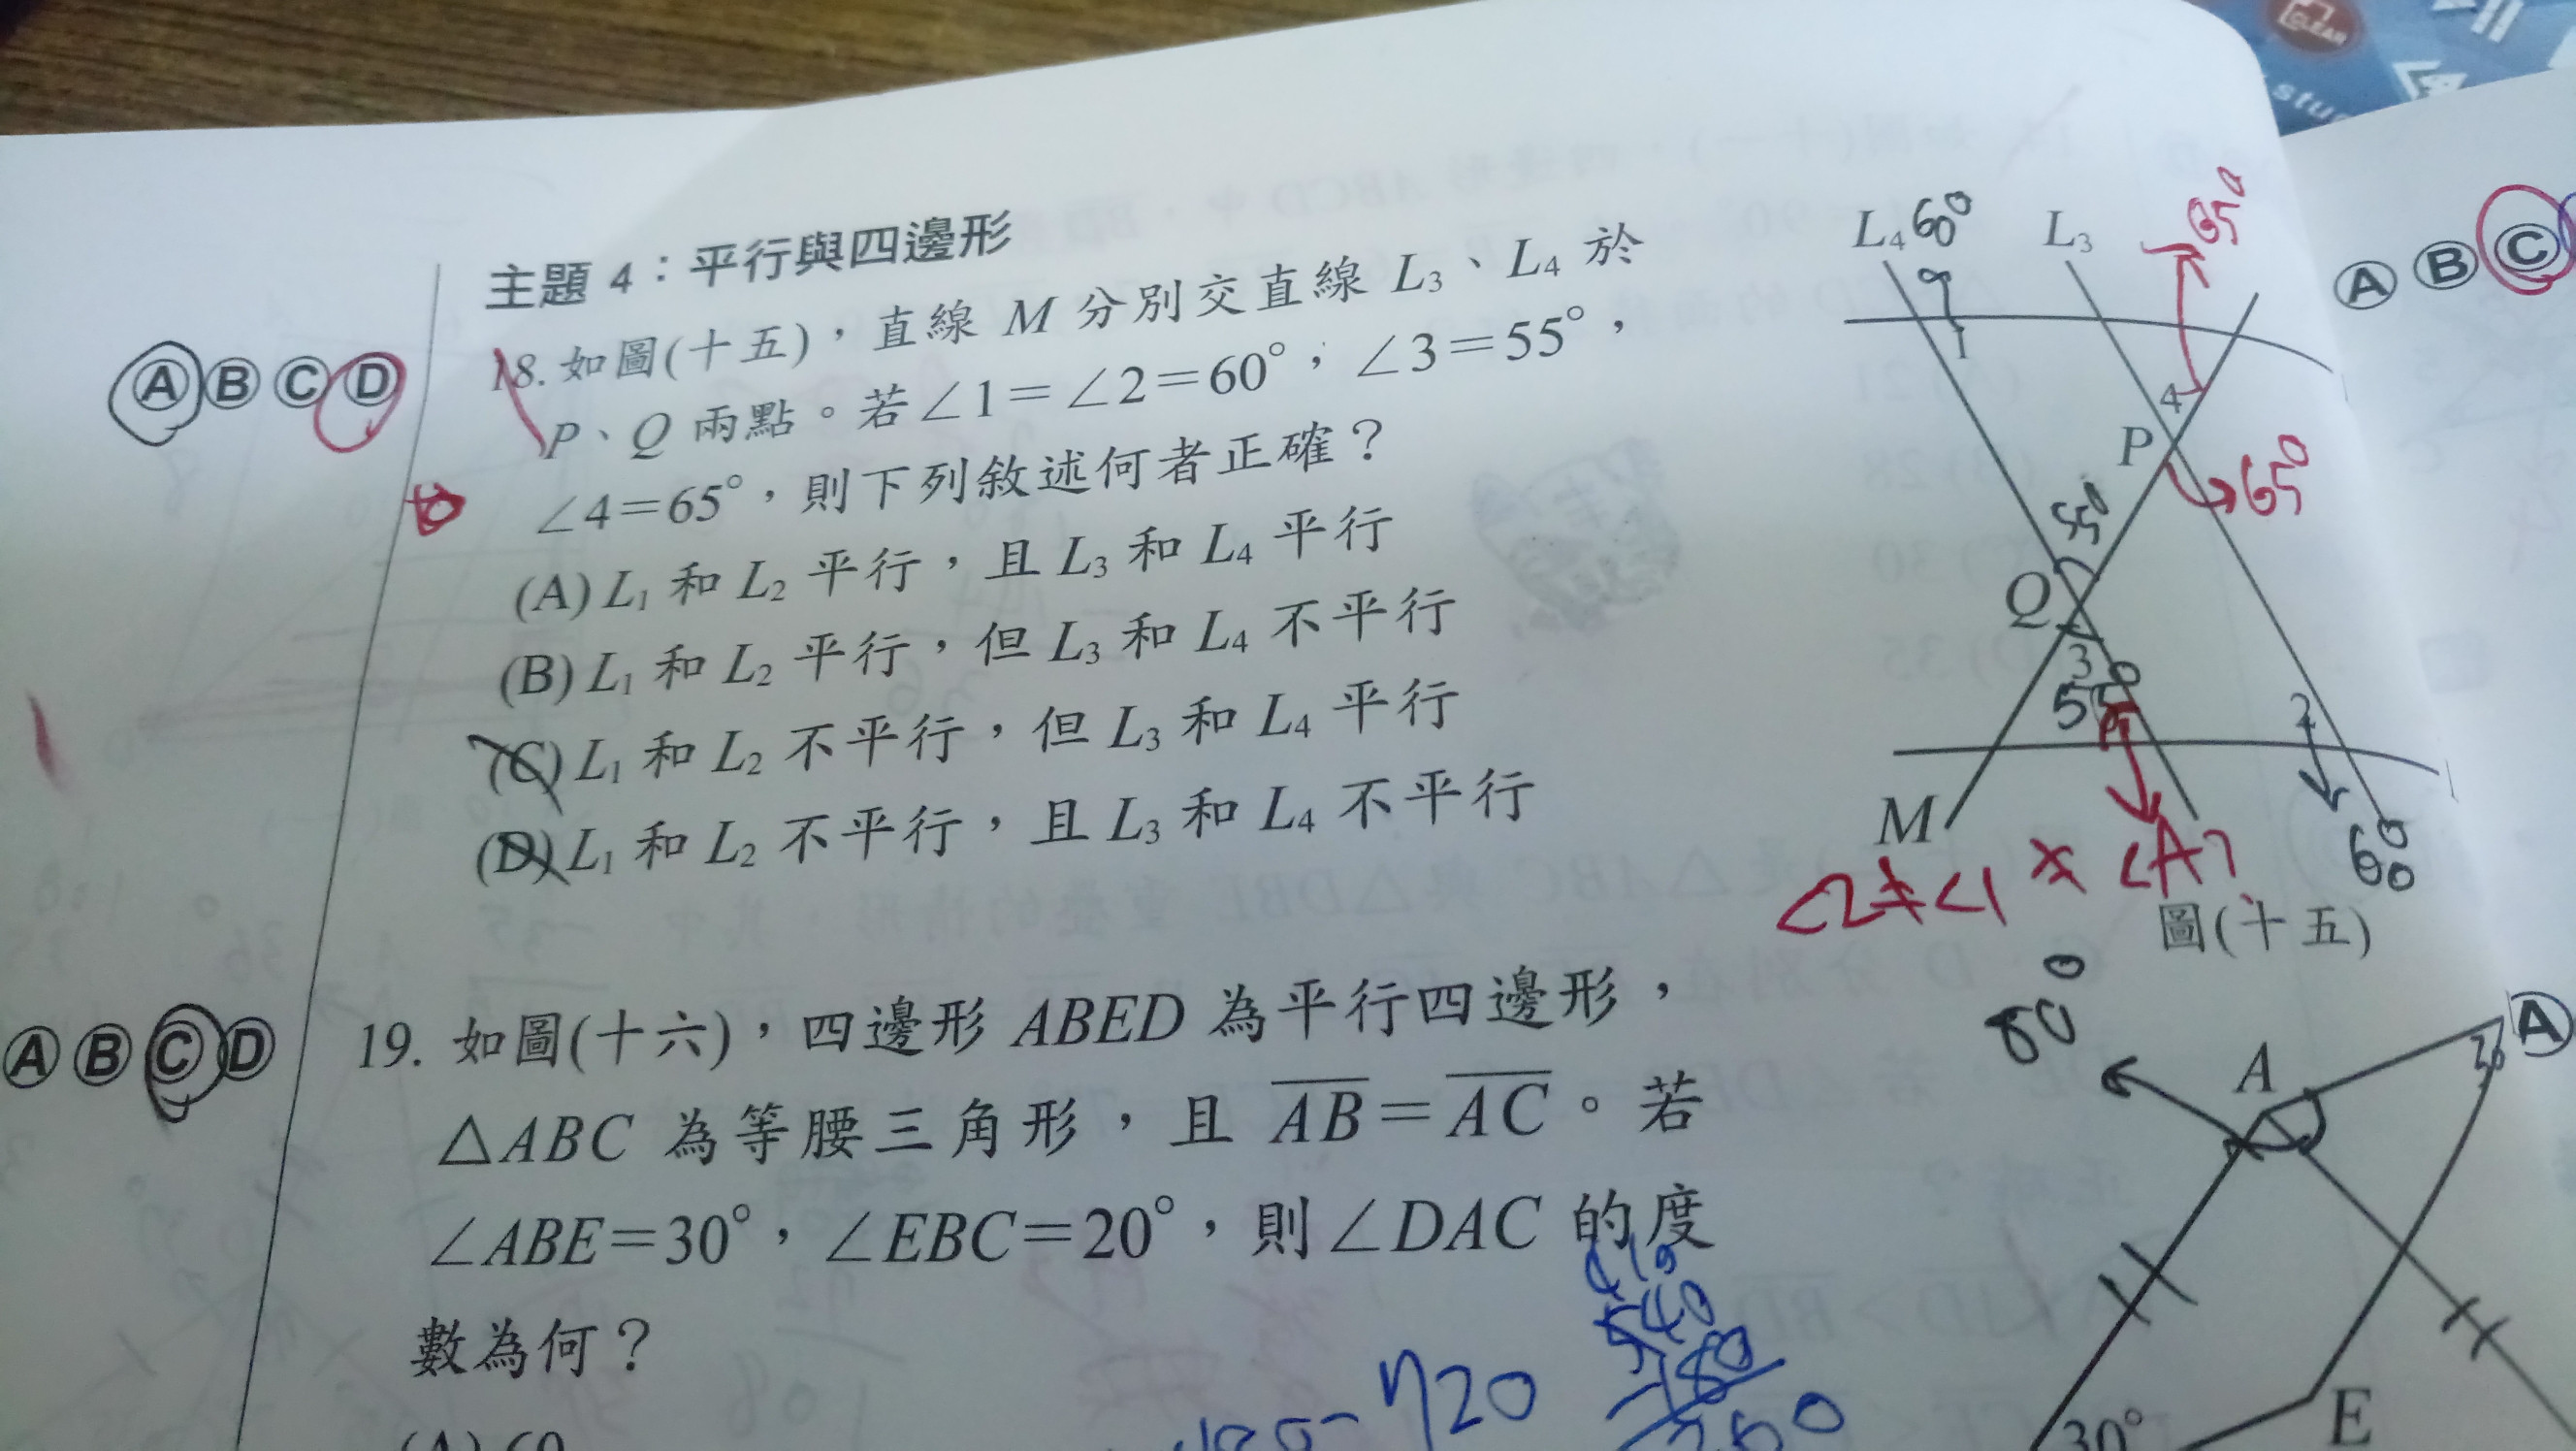 主題 4：平行與四邊形
ⒶⒷⒸⒹ 18. 如圖(十五)，直線 M 分別交直線 L₃、L₄ 於
P、Q 兩點。若∠1＝∠2＝60°，∠3＝55°，
∠4＝65°，則下列敘述何者正確？
(A) L₁ 和 L₂ 平行，且 L₃ 和 L₄ 平行
(B) L₁ 和 L₂ 平行，但 L₃ 和 L₄ 不平行
(C) L₁ 和 L₂ 不平行，但 L₃ 和 L₄ 平行
(D) L₁ 和 L₂ 不平行，且 L₃ 和 L₄ 不平行
L₄ 60° L₃ 65°
1
4
P
65°
55°
Q
3
55°
2
M
60°
∠2≠∠1 ∠A?
圖(十五)
ⒶⒷⒸⒹ 19. 如圖(十六)，四邊形 ABED 為平行四邊形，
△ABC 為等腰三角形，且 AB＝AC。若
∠ABE＝30°，∠EBC＝20°，則∠DAC 的度
數為何？
80°
A
30
E
30°
540
180
720
ⒶⒷⒸ
Ⓐ
CLEAR